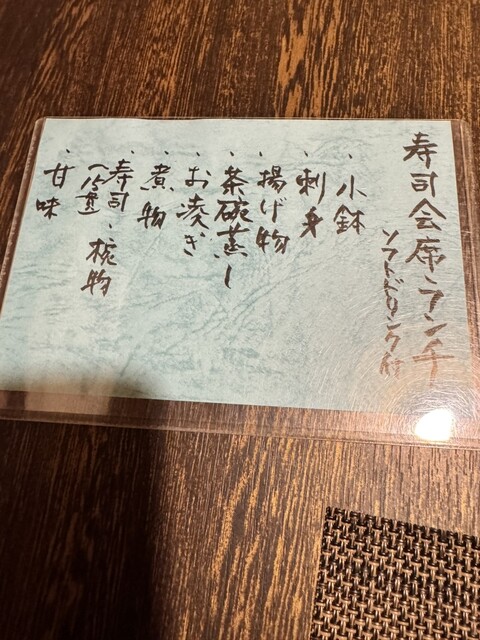 寿司会席ランチ
ソフトドリンク付
・小鉢
・刺身
・揚げ物
・茶碗蒸し
・お凌ぎ
・煮物
・寿司、椀物
(15貫)
・甘味